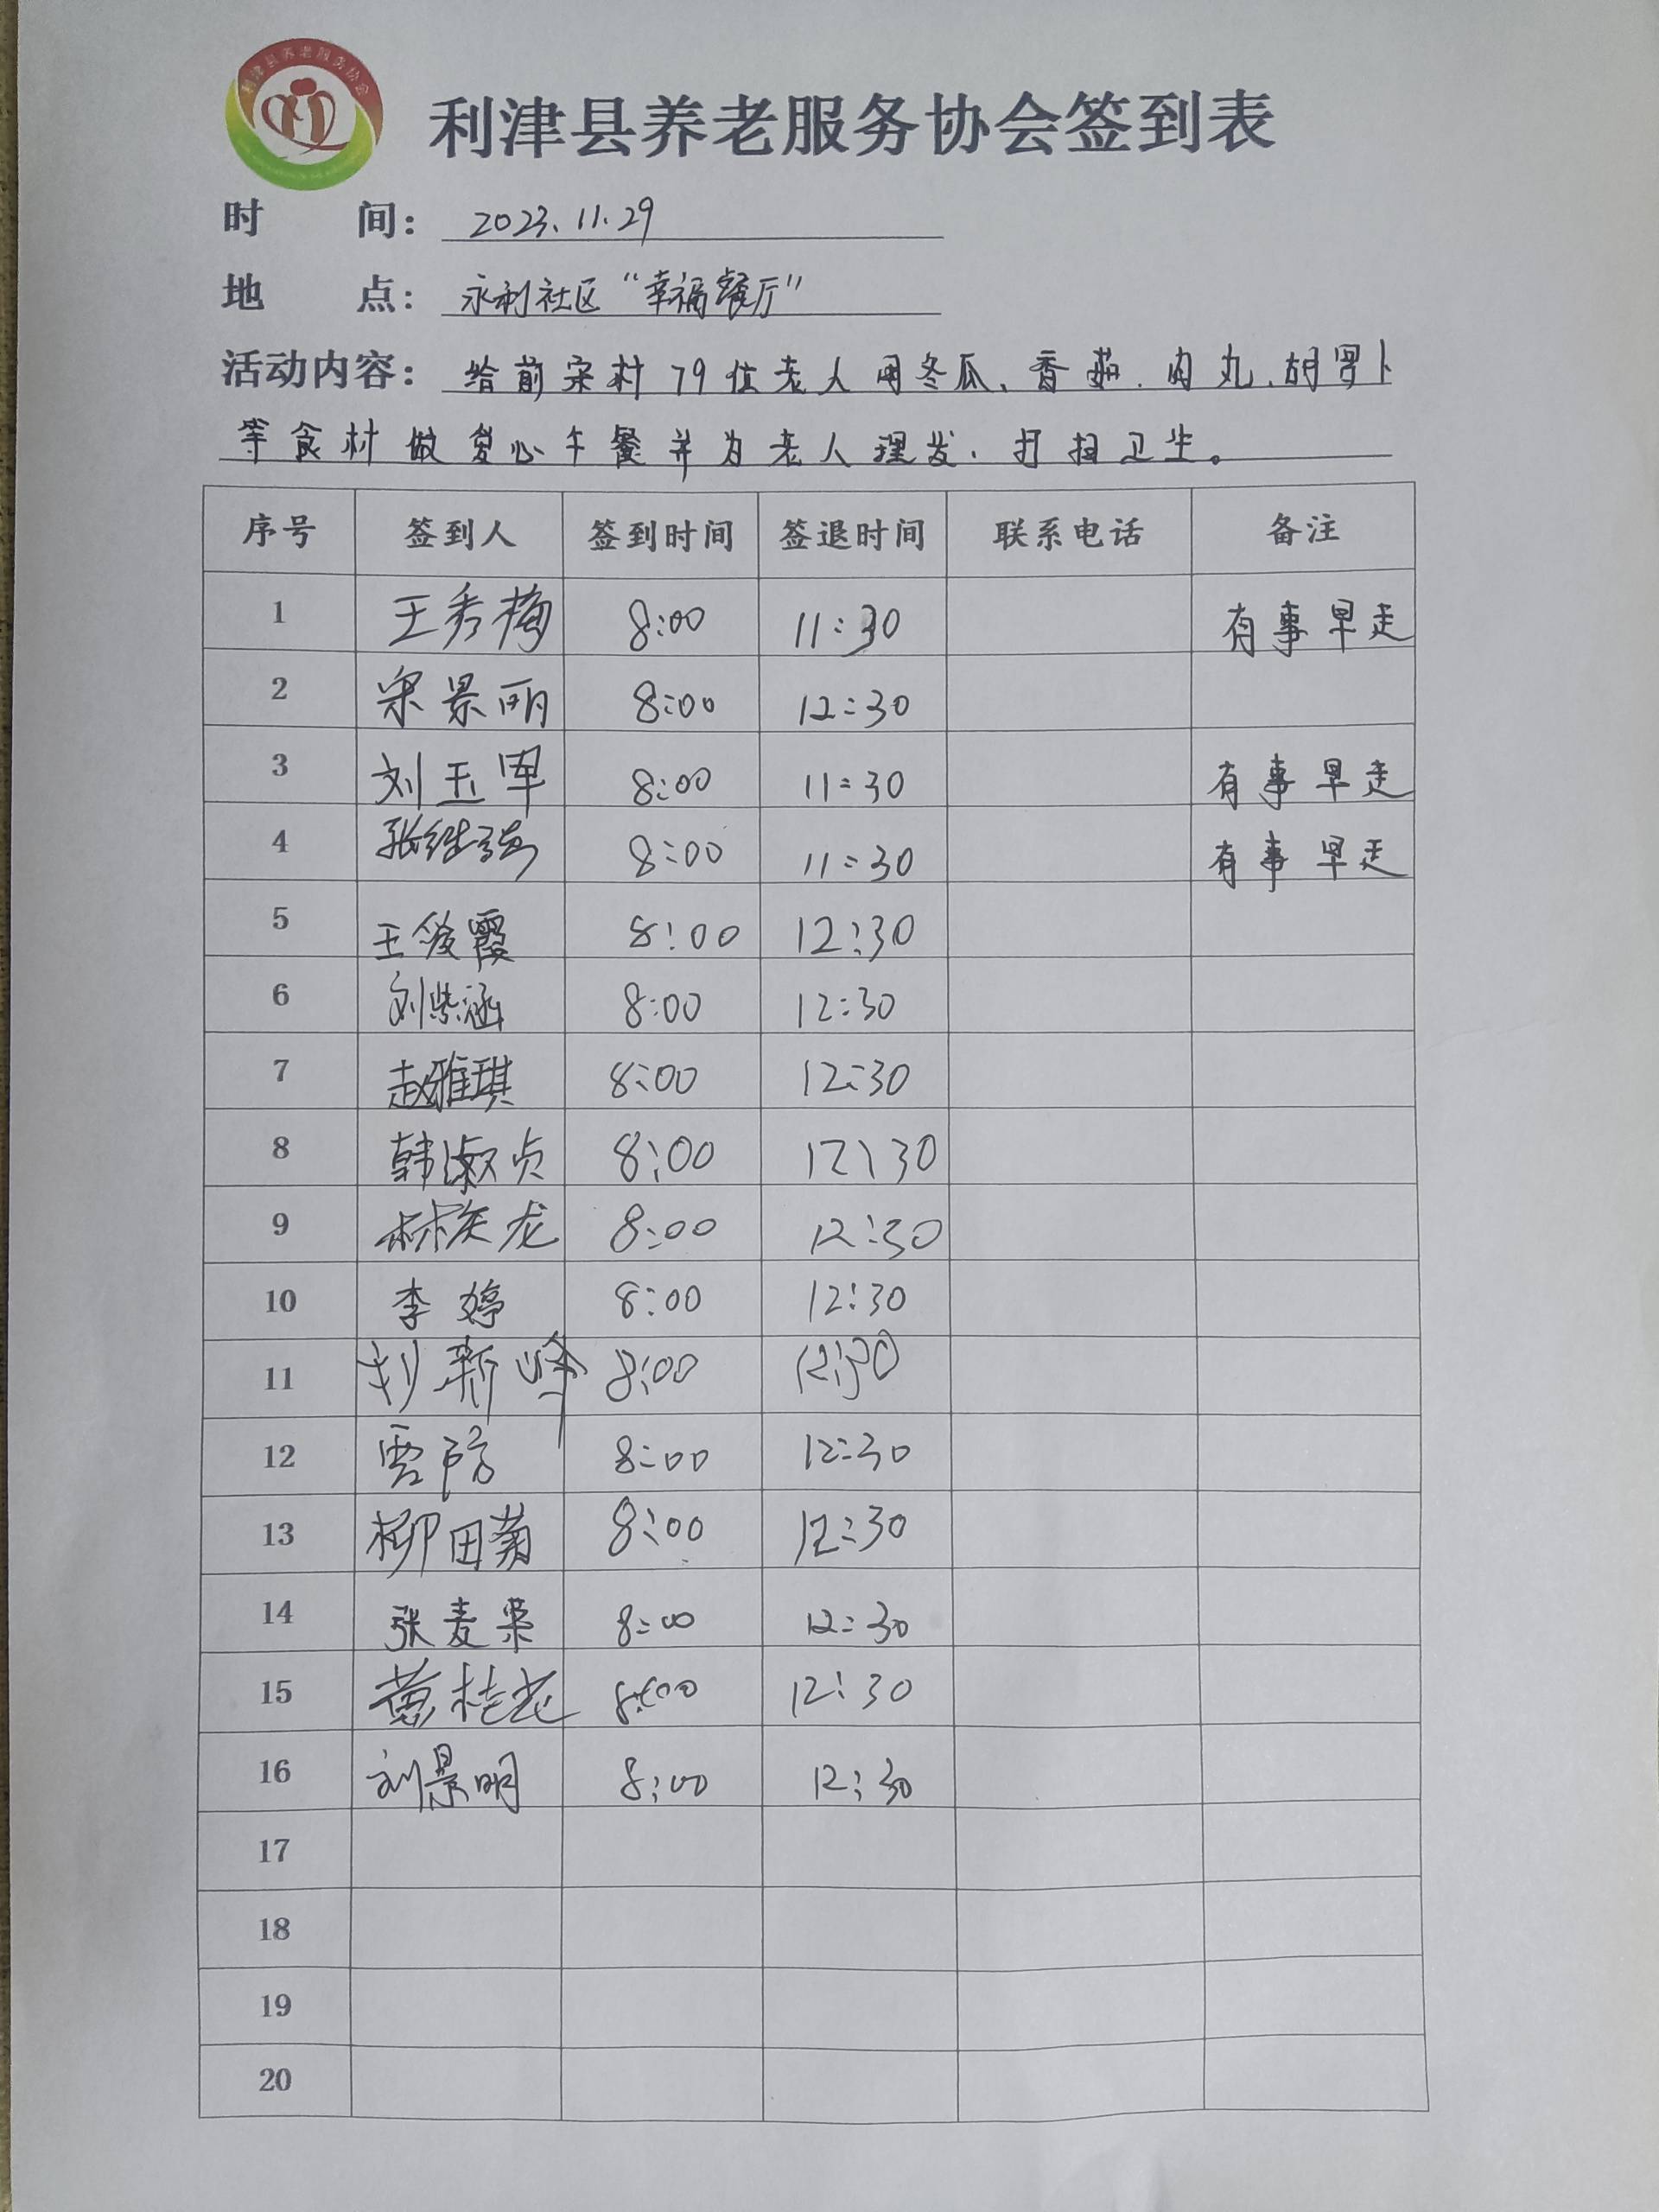 利津县养老服务协会
利津县养老服务协会签到表
时 间： 2023.11.29
地 点： 永利社区“幸福餐厅”
活动内容： 给前宋村79位老人用冬瓜、香菇、肉丸、胡罗卜
等食材做爱心午餐并为老人理发、打扫卫生。
序号 签到人 签到时间 签退时间 联系电话 备注
1 王秀梅 8:00 11:30 有事早走
2 宋景丽 8:00 12:30
3 刘玉军 8:00 11:30 有事早走
4 张继 8:00 11:30 有事早走
5 王俊霞 8:00 12:30
6 刘紫涵 8:00 12:30
7 赵雅琪 8:00 12:30
8 韩淑贞 8:00 12:30
9 龙 8:00 12:30
10 李婷 8:00 12:30
11 刘新峰 8:00 12:30
12 贾芳 8:00 12:30
13 柳田菊 8:00 12:30
14 张麦 8:00 12:30
15 桂花 8:00 12:30
16 刘景明 8:00 12:30
17
18
19
20